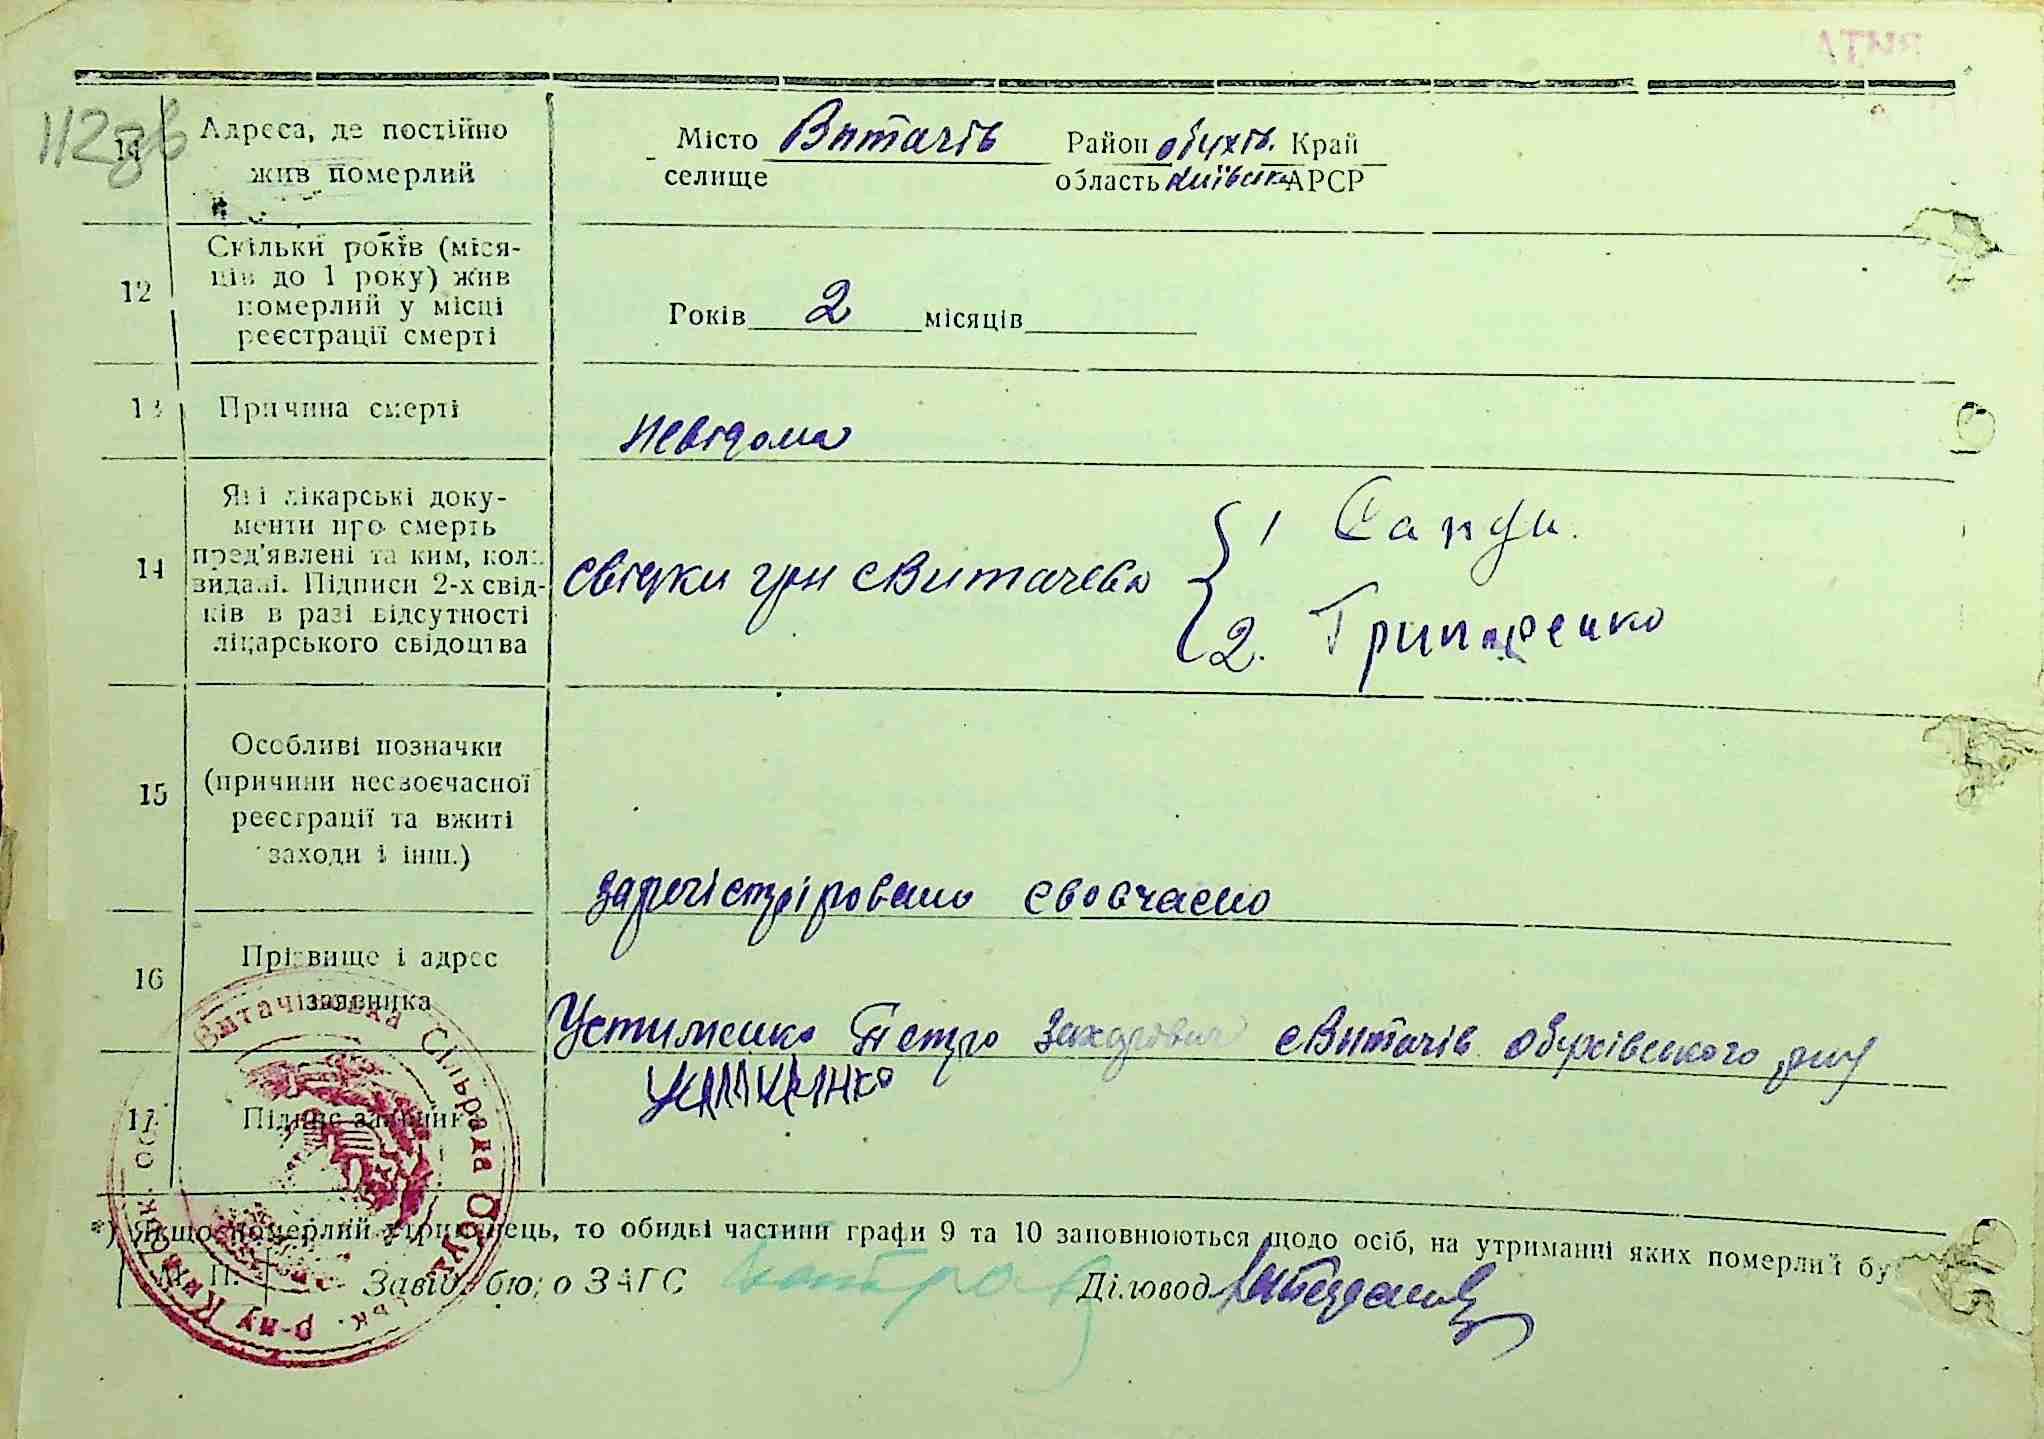 112 зв
11 Адреса, де постійно
жив померлий
Місто Витачів Район обухів. Край
селище область київськ АРСР
12 Скільки років (міся-
ців до 1 року) жив
померлий у місці
реєстрації смерті
Років 2 місяців
13 Причина смерті
невідома
14 Які лікарські доку-
менти про смерть
пред'явлені та ким, коли
видані. Підписи 2-х свід-
ків в разі відсутності
лікарського свідоцтва
свідки грн с Витачева
1
2.
15 Особливі позначки
(причини несвоєчасної
реєстрації та вжиті
заходи і інш.)
зарегістріровано своєчасно
16 Прізвище і адрес
заявника
Устименко Петро Захарович с Витачів обухівського рну
17 Підпис заявника
Устименко
*) Якщо померлий утриманець, то обидві частини графи 9 та 10 заповнюються щодо осіб, на утриманні яких померлий бу
М. П. Завід. бюро ЗАГС Діловод
Витачівська Сільрада